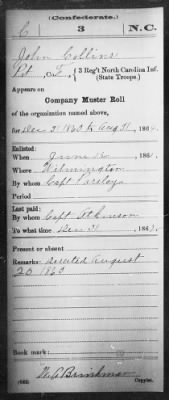 (Confederate.)
C 3 N.C.
John Collins
Pvt., Co. F, 3 Reg't North Carolina Inf.
(State Troops.)
Appears on
Company Muster Roll
of the organization named above,
for Dec 31 1863 to Aug 31, 1864.
Enlisted:
When June, 1861.
Where Wilmington
By whom Capt
Period
Last paid:
By whom Capt Atkinson
To what time Dec 31, 186
Present or absent
Remarks: deserted August
20 1863
Book mark:
Brinkman
Copyist.